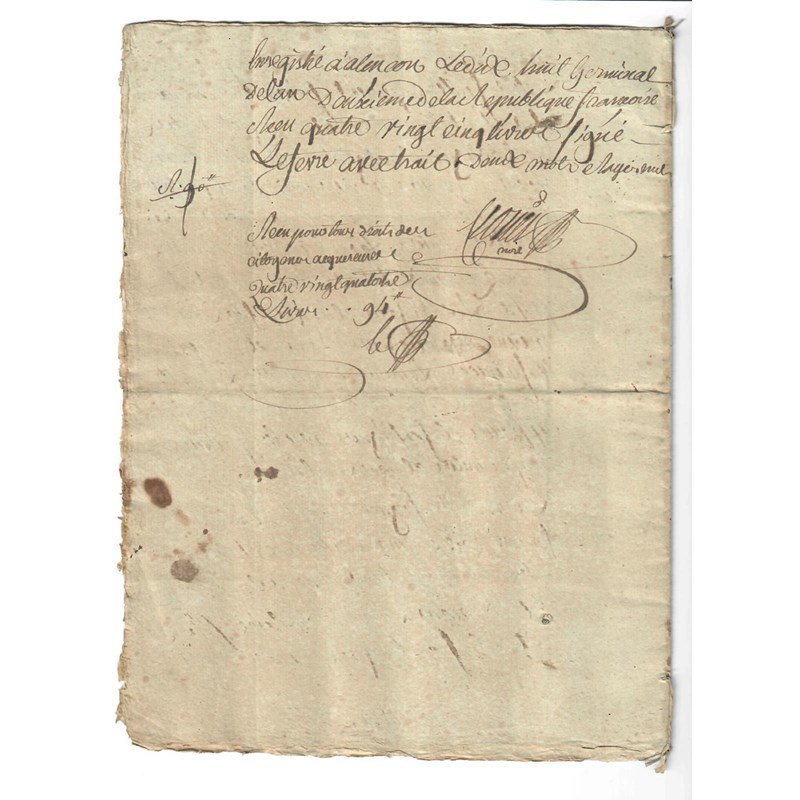 Enregistré a alencon Le dix huit Germinal
de lan Douxieme de la Republique francoise
Recu quatre vingt cinq livres Signé
Lefevre avec trait
R. 90"
Recu pour tous droits des
citoyens acquereurs
quatre vingt quatorse
Livres . . 94"